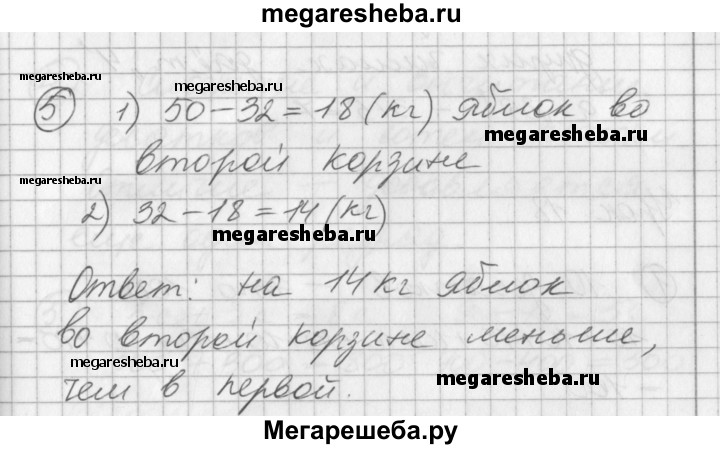 megaresheba.ru
megaresheba.ru
megaresheba.ru
5 1) 50-32=18 (кг) яблок во
megaresheba.ru
второй корзине
megaresheba.ru
2) 32-18=14 (кг)
megaresheba.ru
Ответ: на 14 кг яблок
во второй корзине меньше,
megaresheba.ru
megaresheba.ru
чем в первой.
Мегарешеба.ру